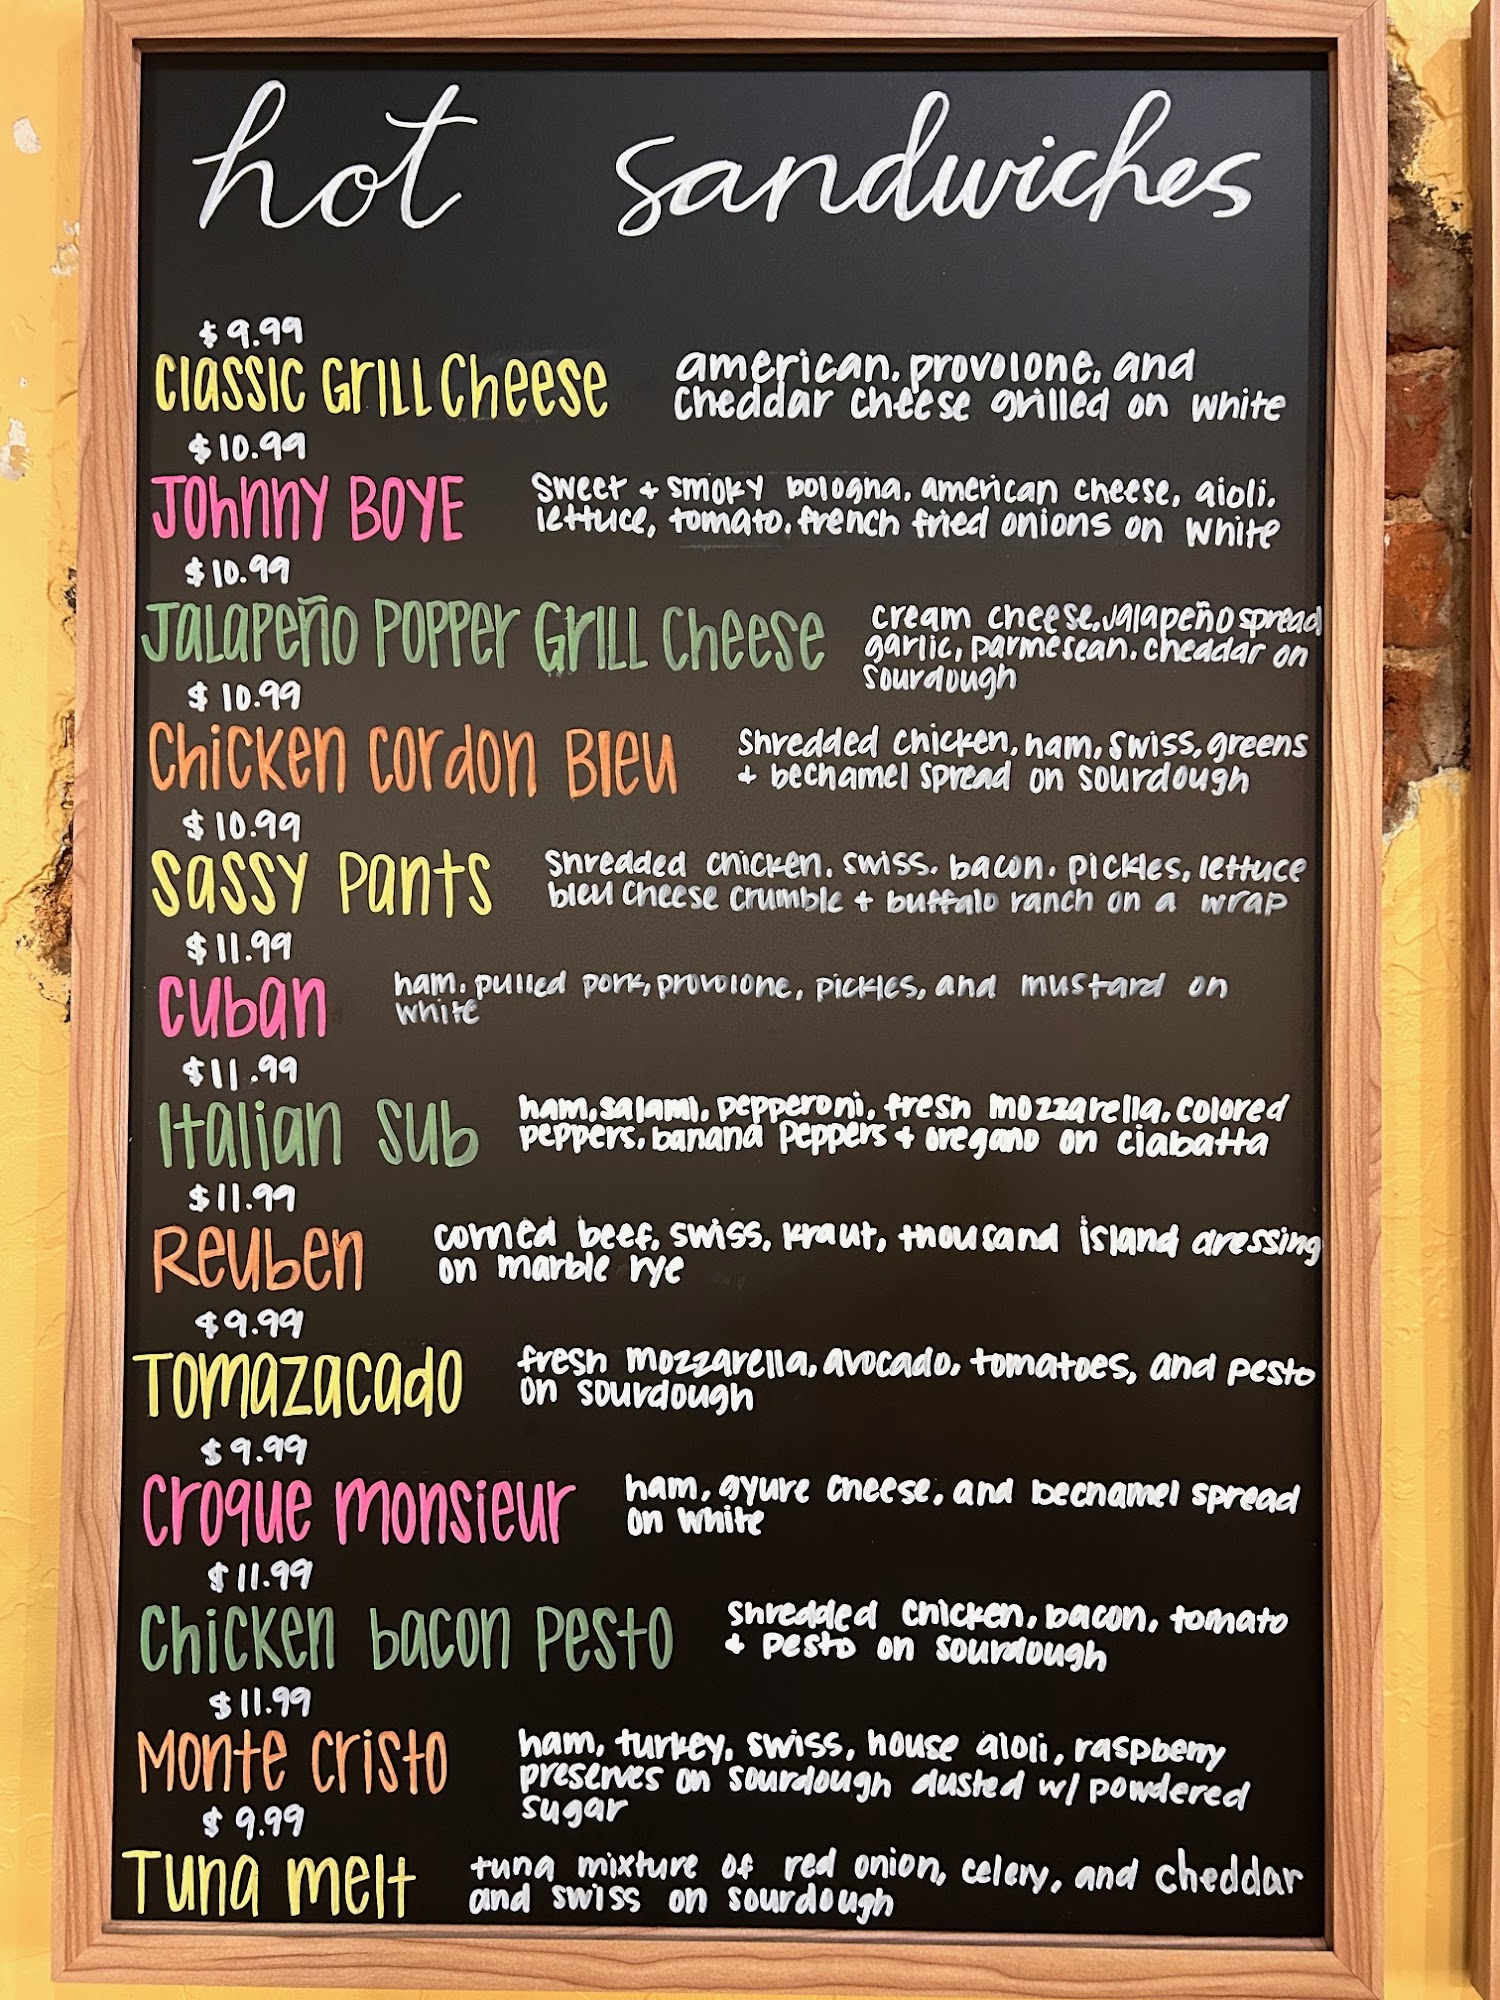 hot sandwiches
$9.99
Classic Grill Cheese
american, provolone, and
cheddar cheese grilled on white
$10.99
Johnny Boye
sweet + smoky bologna, american cheese, aioli,
lettuce, tomato, french fried onions on white
$10.99
Jalapeño Popper Grill Cheese
cream cheese, jalapeño spread
garlic, parmesean, cheddar on
sourdough
$10.99
Chicken Cordon Bleu
shredded chicken, ham, swiss, greens
+ bechamel spread on sourdough
$10.99
Sassy Pants
shredded chicken, swiss, bacon, pickles, lettuce
bleu cheese crumble + buffalo ranch on a wrap
$11.99
Cuban
ham, pulled pork, provolone, pickles, and mustard on
white
$11.99
Italian Sub
ham, salami, pepperoni, fresh mozzarella, colored
peppers, banana peppers + oregano on ciabatta
$11.99
Reuben
corned beef, swiss, kraut, thousand island dressing
on marble rye
$9.99
Tomazacado
fresh mozzarella, avocado, tomatoes, and pesto
on sourdough
$9.99
Croque Monsieur
ham, gyure cheese, and bechamel spread
on white
$11.99
Chicken bacon Pesto
shredded chicken, bacon, tomato
+ pesto on sourdough
$11.99
Monte Cristo
ham, turkey, swiss, house aioli, raspberry
preserves on sourdough dusted w/ powdered
sugar
$9.99
Tuna melt
tuna mixture of red onion, celery, and cheddar
and swiss on sourdough